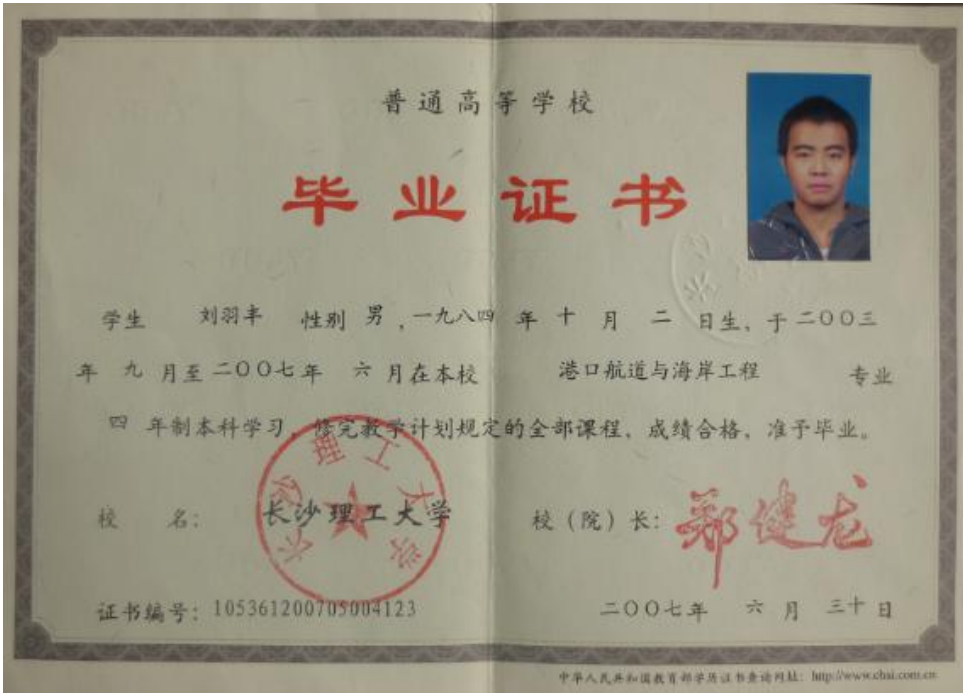 普通高等学校
毕业证书
学生 刘羽丰 性别 男，一九八四 年 十 月 二 日生，于二〇〇三
年 九 月至二〇〇七年 六 月在本校 港口航道与海岸工程 专业
四 年制本科学习，修完教学计划规定的全部课程，成绩合格，准予毕业。
校 名： 长沙理工大学
长沙理工大学
校（院）长： 郑健龙
证书编号：105361200705004123
二〇〇七年 六 月 三十 日
中华人民共和国教育部学历证书查询网址：http://www.chsi.com.cn